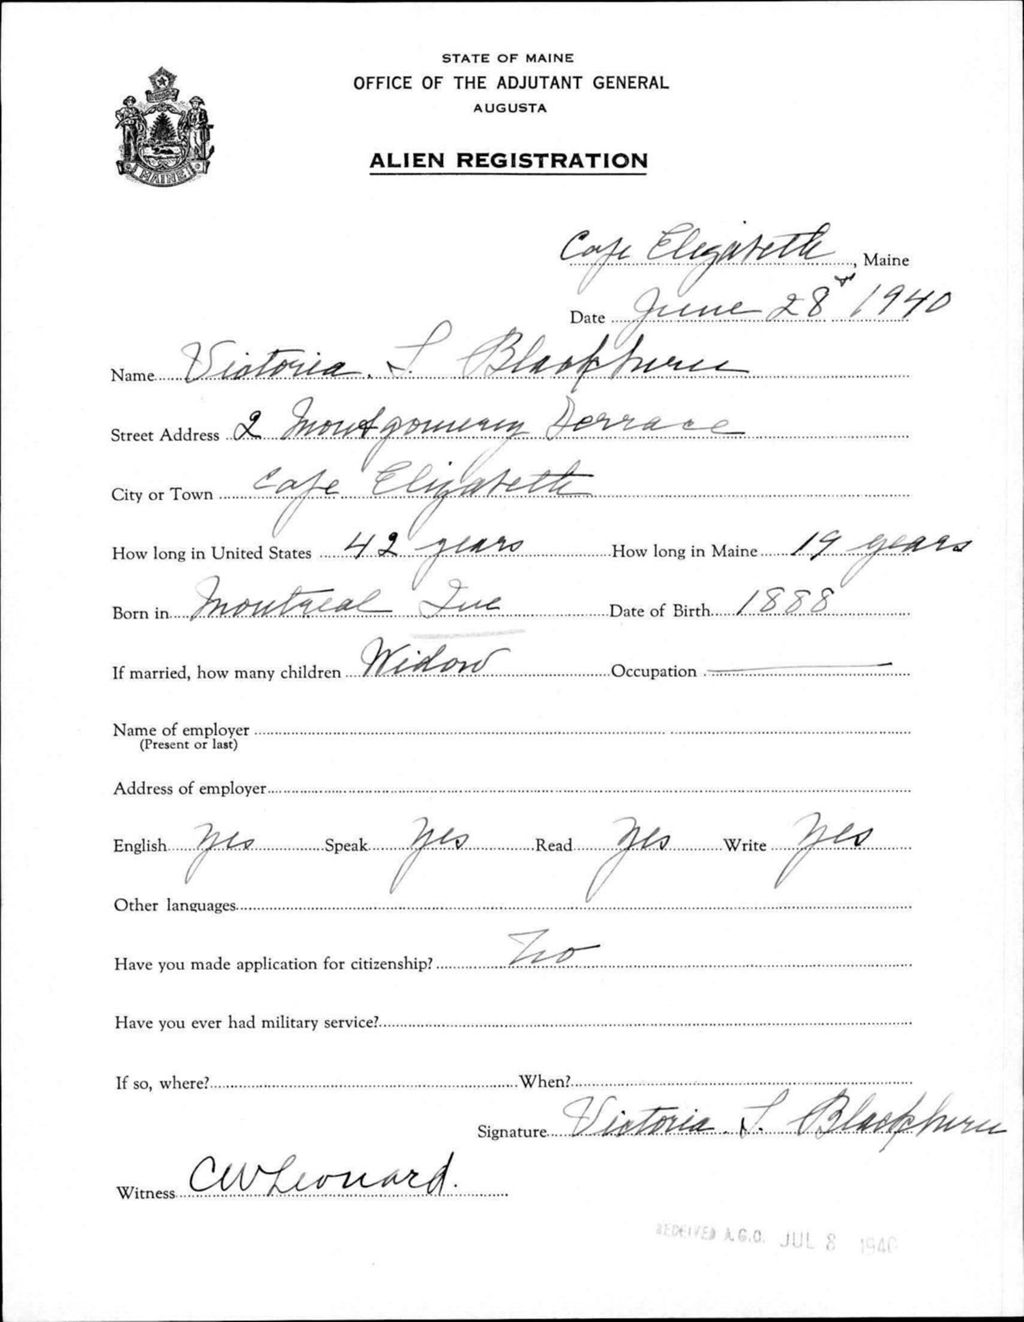 STATE OF MAINE
OFFICE OF THE ADJUTANT GENERAL
AUGUSTA
MAINE
ALIEN REGISTRATION
Cape Elizabeth, Maine
Date June 28 1940
Name Victoria. S. Blackburn
Street Address 2 Montgomery Terrace
City or Town Cape Elizabeth
How long in United States 42 years How long in Maine 19 years
Born in Montreal Que Date of Birth 1888
If married, how many children Widow Occupation
Name of employer
(Present or last)
Address of employer
English yes Speak yes Read yes Write yes
Other languages
Have you made application for citizenship? No
Have you ever had military service?
If so, where? When?
Signature Victoria. S. Blackburn
Witness CW Leonard.
RECEIVED A.G.O. JUL 8 1940